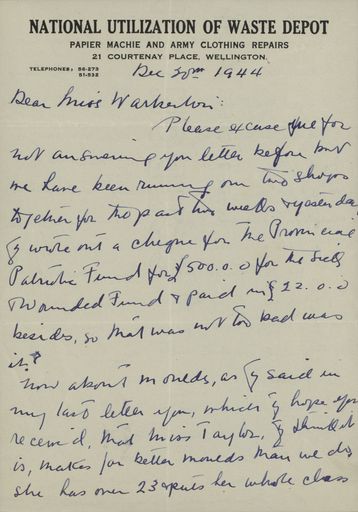 NATIONAL UTILIZATION OF WASTE DEPOT
PAPIER MACHIE AND ARMY CLOTHING REPAIRS
21 COURTENAY PLACE, WELLINGTON.
TELEPHONES: 56-273
51-532
Dec 1944
Dear Miss Warburton:
Please excuse me for
not answering your letter before but
we have been running our two shops
together for the past two weeks & yesterday
I wrote out a cheque for the Provincial
Patriotic Fund for £500.0.0 for the Sick
& Wounded Fund & paid in £22.0.0
besides, so that was not too bad was
it?
Now about moulds, as I said in
my last letter you, which I hope you
received, that Miss Taylor, I think it
is, makes far better moulds than we do,
she has over 23 & puts her whole class